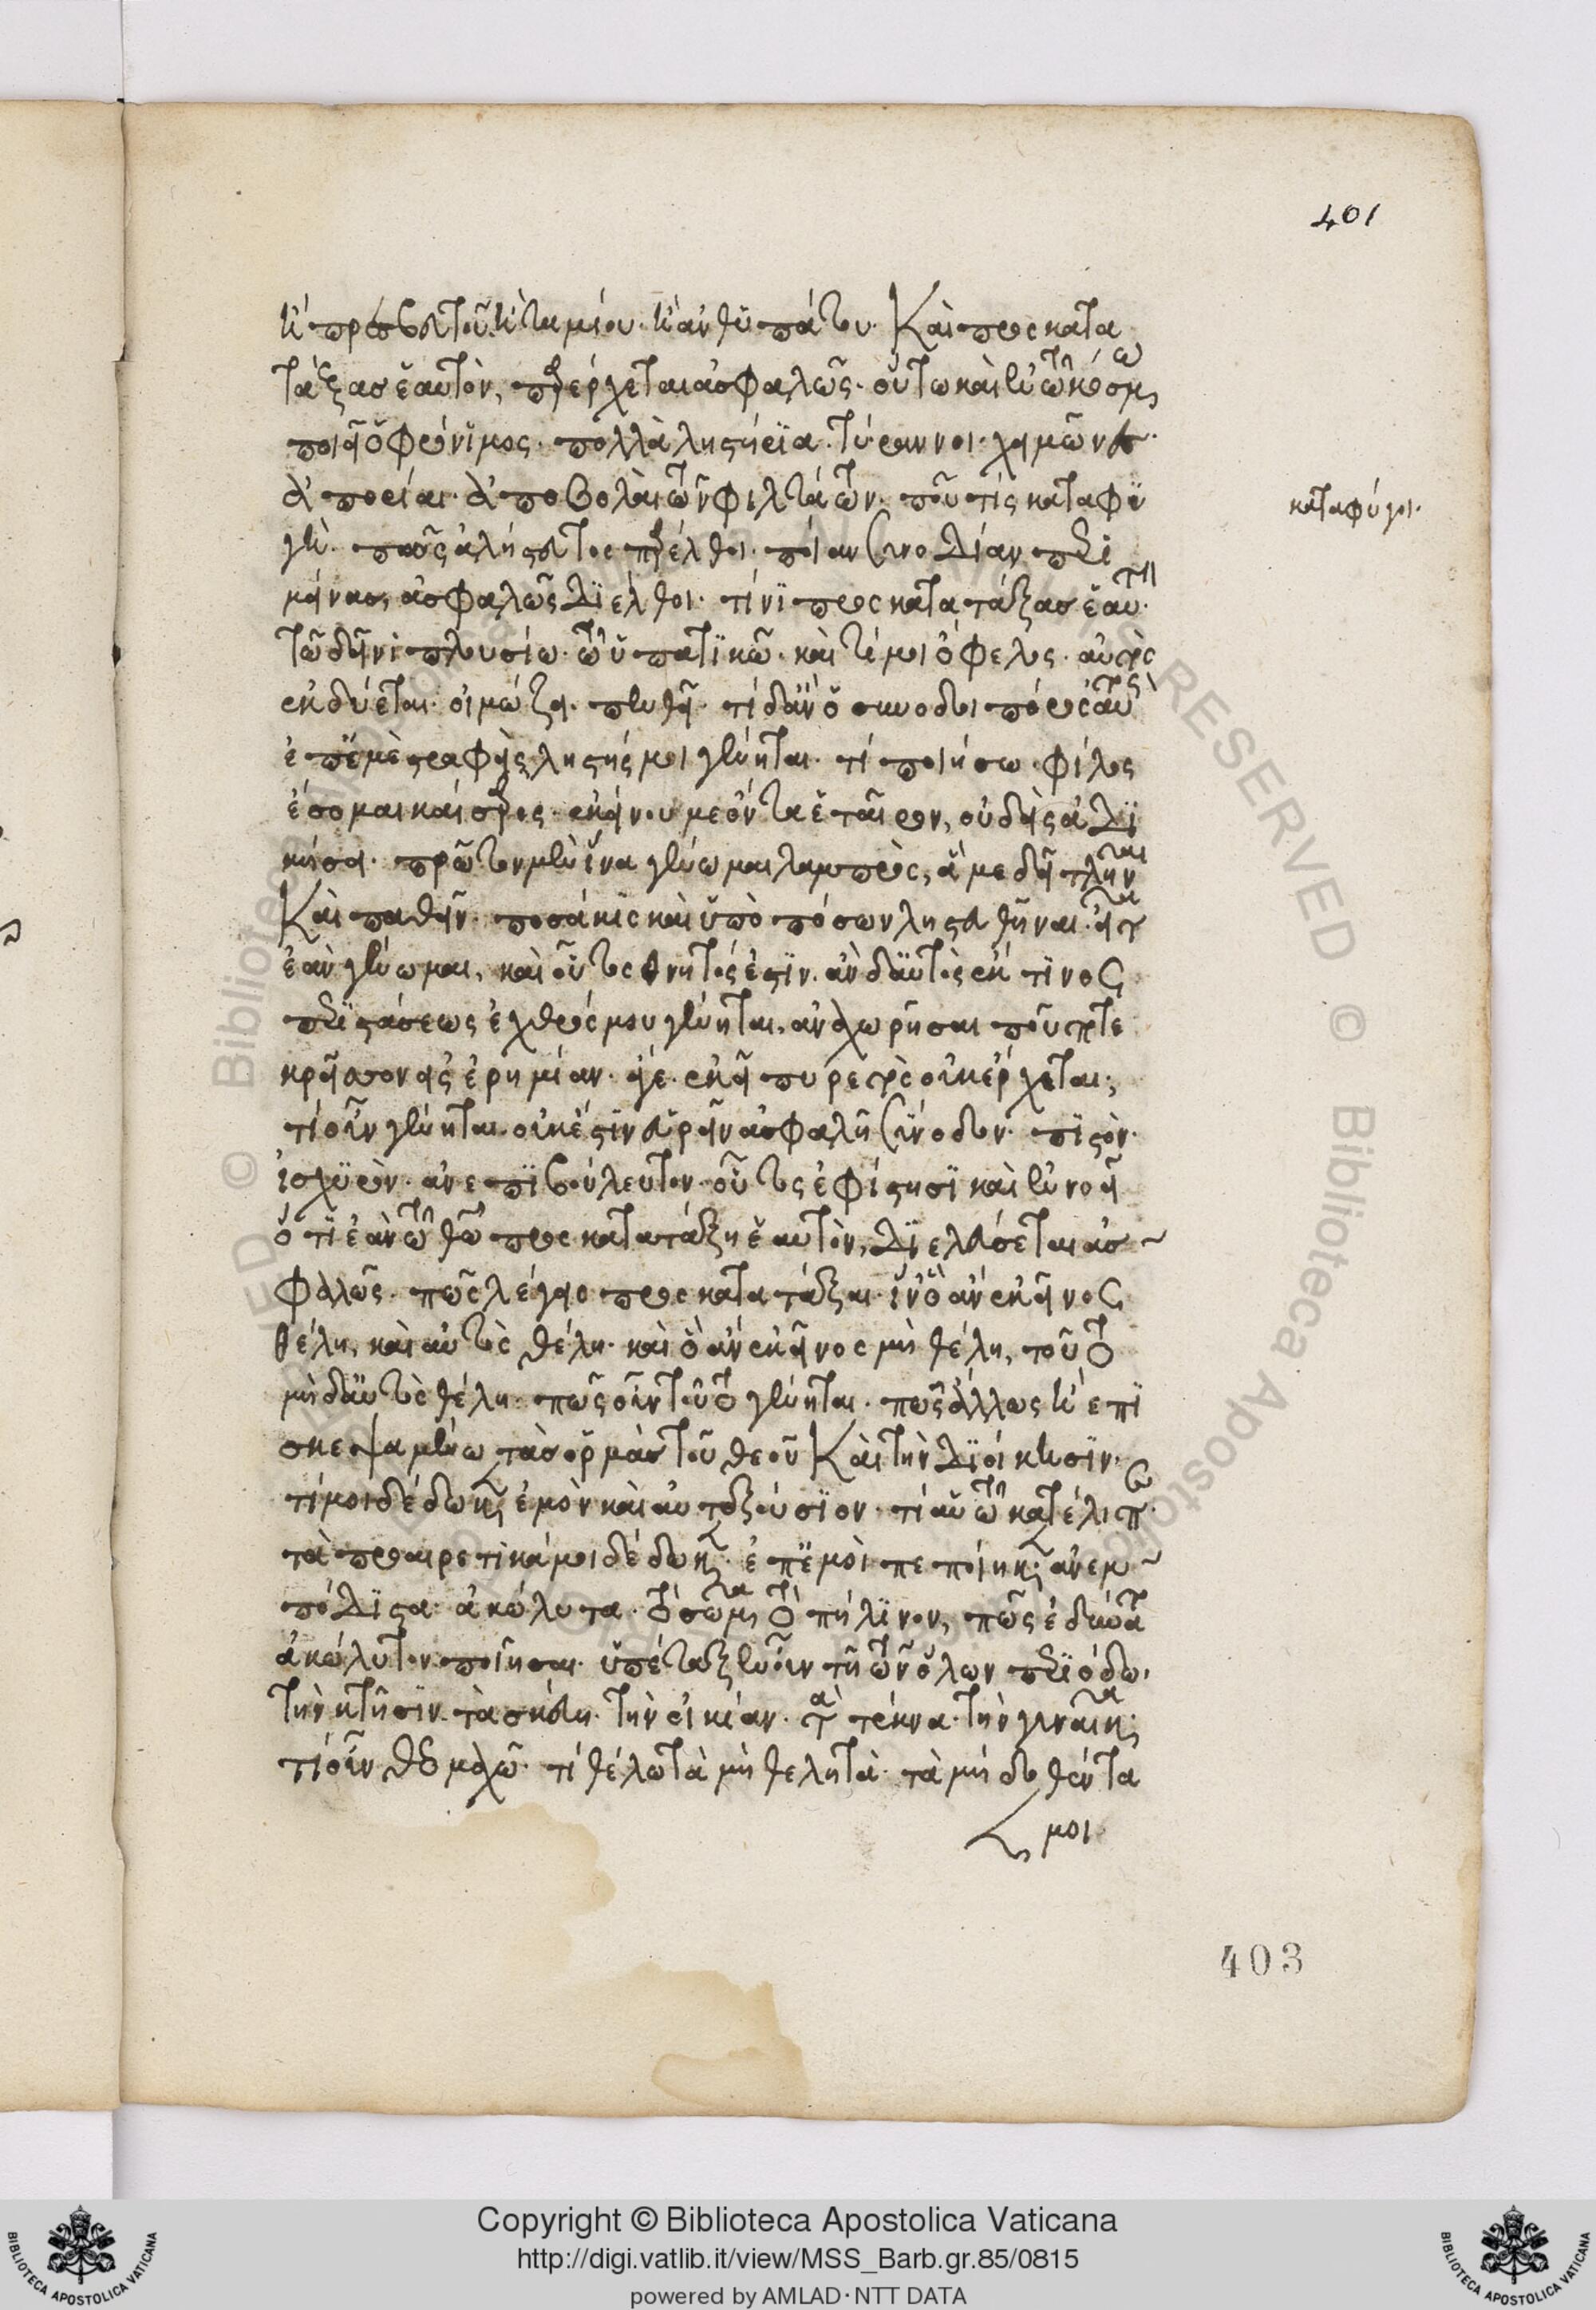 401
ἢ πρεσβευτοῦ ἢ ταμίου ἢ ἀνθυπάτου. Καὶ προσκατα
τάξας ἑαυτὸν, παρέρχεται ἀσφαλῶς. οὕτω καὶ ἐν τῶ κόσμω
ποιεῖ ὁ φρόνιμος. πολλὰ ληστήρια. τύραννοι. χειμῶνες.
ἀπορίαι. ἀποβολαὶ τῶν φιλτάτων. ποῦ τίς καταφύ
γη. πῶς ἀλήστευτος παρέλθοι. ποίαν συνοδίαν περι
μείνας, ἀσφαλῶς διέλθοι. τίνι προσκατατάξας ἑαυτόν.
τῶ δεῖνι πλουσίω. τῶ ὑπατικῶ. καὶ τί μοι ὄφελος. αὐτὸς
ἐκδύεται. οἰμώζει. πενθεῖ. τί δ' ἂν ὁ συνοδοιπόρος αὐτὸς
ἐπ' ἐμὲ στραφεὶς ληστής μοι γένηται. τί ποιήσω. φίλος
ἔσομαι καίσαρος. ἐκείνου με ὄντα ἑταῖρον, οὐδεὶς ἀδι
κήσει. πρῶτον μὲν ἵνα γένωμαι λαμπρὸς, ἅ με δεῖ τλῆναι
Καὶ παθεῖν. ποσάκις καὶ ὑπὸ πόσων ληστευθῆναι. εἶτα
ἐὰν γένωμαι, καὶ οὗτος θνητός ἐστιν. ἂν δ' αὐτὸς ἔκ τινος
περιστάσεως ἐχθρός μου γένηται, ἀναχωρῆσαι ποῦ ποτε
κρεῖσσον εἰς ἐρημίαν. ἄγε. ἐκεῖ πυρετὸς οὐκ ἔρχεται;
τί οὖν γένηται. οὐκ ἔστιν εὑρεῖν ἀσφαλῆ σύνοδον. πιστὸν.
ἰσχυρὸν. ἀνεπιβούλευτον. οὕτως ἐφίστησι καὶ ἐννοεῖ
ὅτι ἐὰν τῶ θεῶ προσκατατάξη ἑαυτὸν, διελεύσεται ἀσ
φαλῶς. πῶς λέγεις προσκατατάξαι. ἵν' ὃ ἂν ἐκεῖνος
θέλη, καὶ αὐτὸς θέλη. καὶ ὃ ἂν ἐκεῖνος μὴ θέλη, τοῦτο
μηδ' αὐτὸς θέλη. πῶς οὖν τοῦτο γένηται. πῶς ἄλλως ἢ ἐπι
σκεψαμένω τὰς ὁρμὰς τοῦ θεοῦ Καὶ τὴν διοίκησιν.
τί μοι δέδωκεν ἐμὸν καὶ αὐτεξούσιον. τί αὑτῶ κατέλιπεν.
τὰ προαιρετικά μοι δέδωκεν. ἐπ' ἐμοὶ πεποίηκεν ἀνεμ
πόδιστα. ἀκώλυτα. τὸ σῶμα τὸ πήλινον, πῶς ἐδύνατο
ἀκώλυτον ποιῆσαι. ὑπέταξεν οὖν τῆ τῶν ὅλων περιόδω.
τὴν κτῆσιν. τὰ σκεύη. τὴν οἰκίαν. τὰ τέκνα. τὴν γυναῖκα.
τί οὖν θεομαχῶ. τί θέλω τὰ μὴ θελητὰ. τὰ μὴ δοθέντα
μοι
καταφύγοι.
403
Copyright © Biblioteca Apostolica Vaticana
http://digi.vatlib.it/view/MSS_Barb.gr.85/0815
powered by AMLAD · NTT DATA